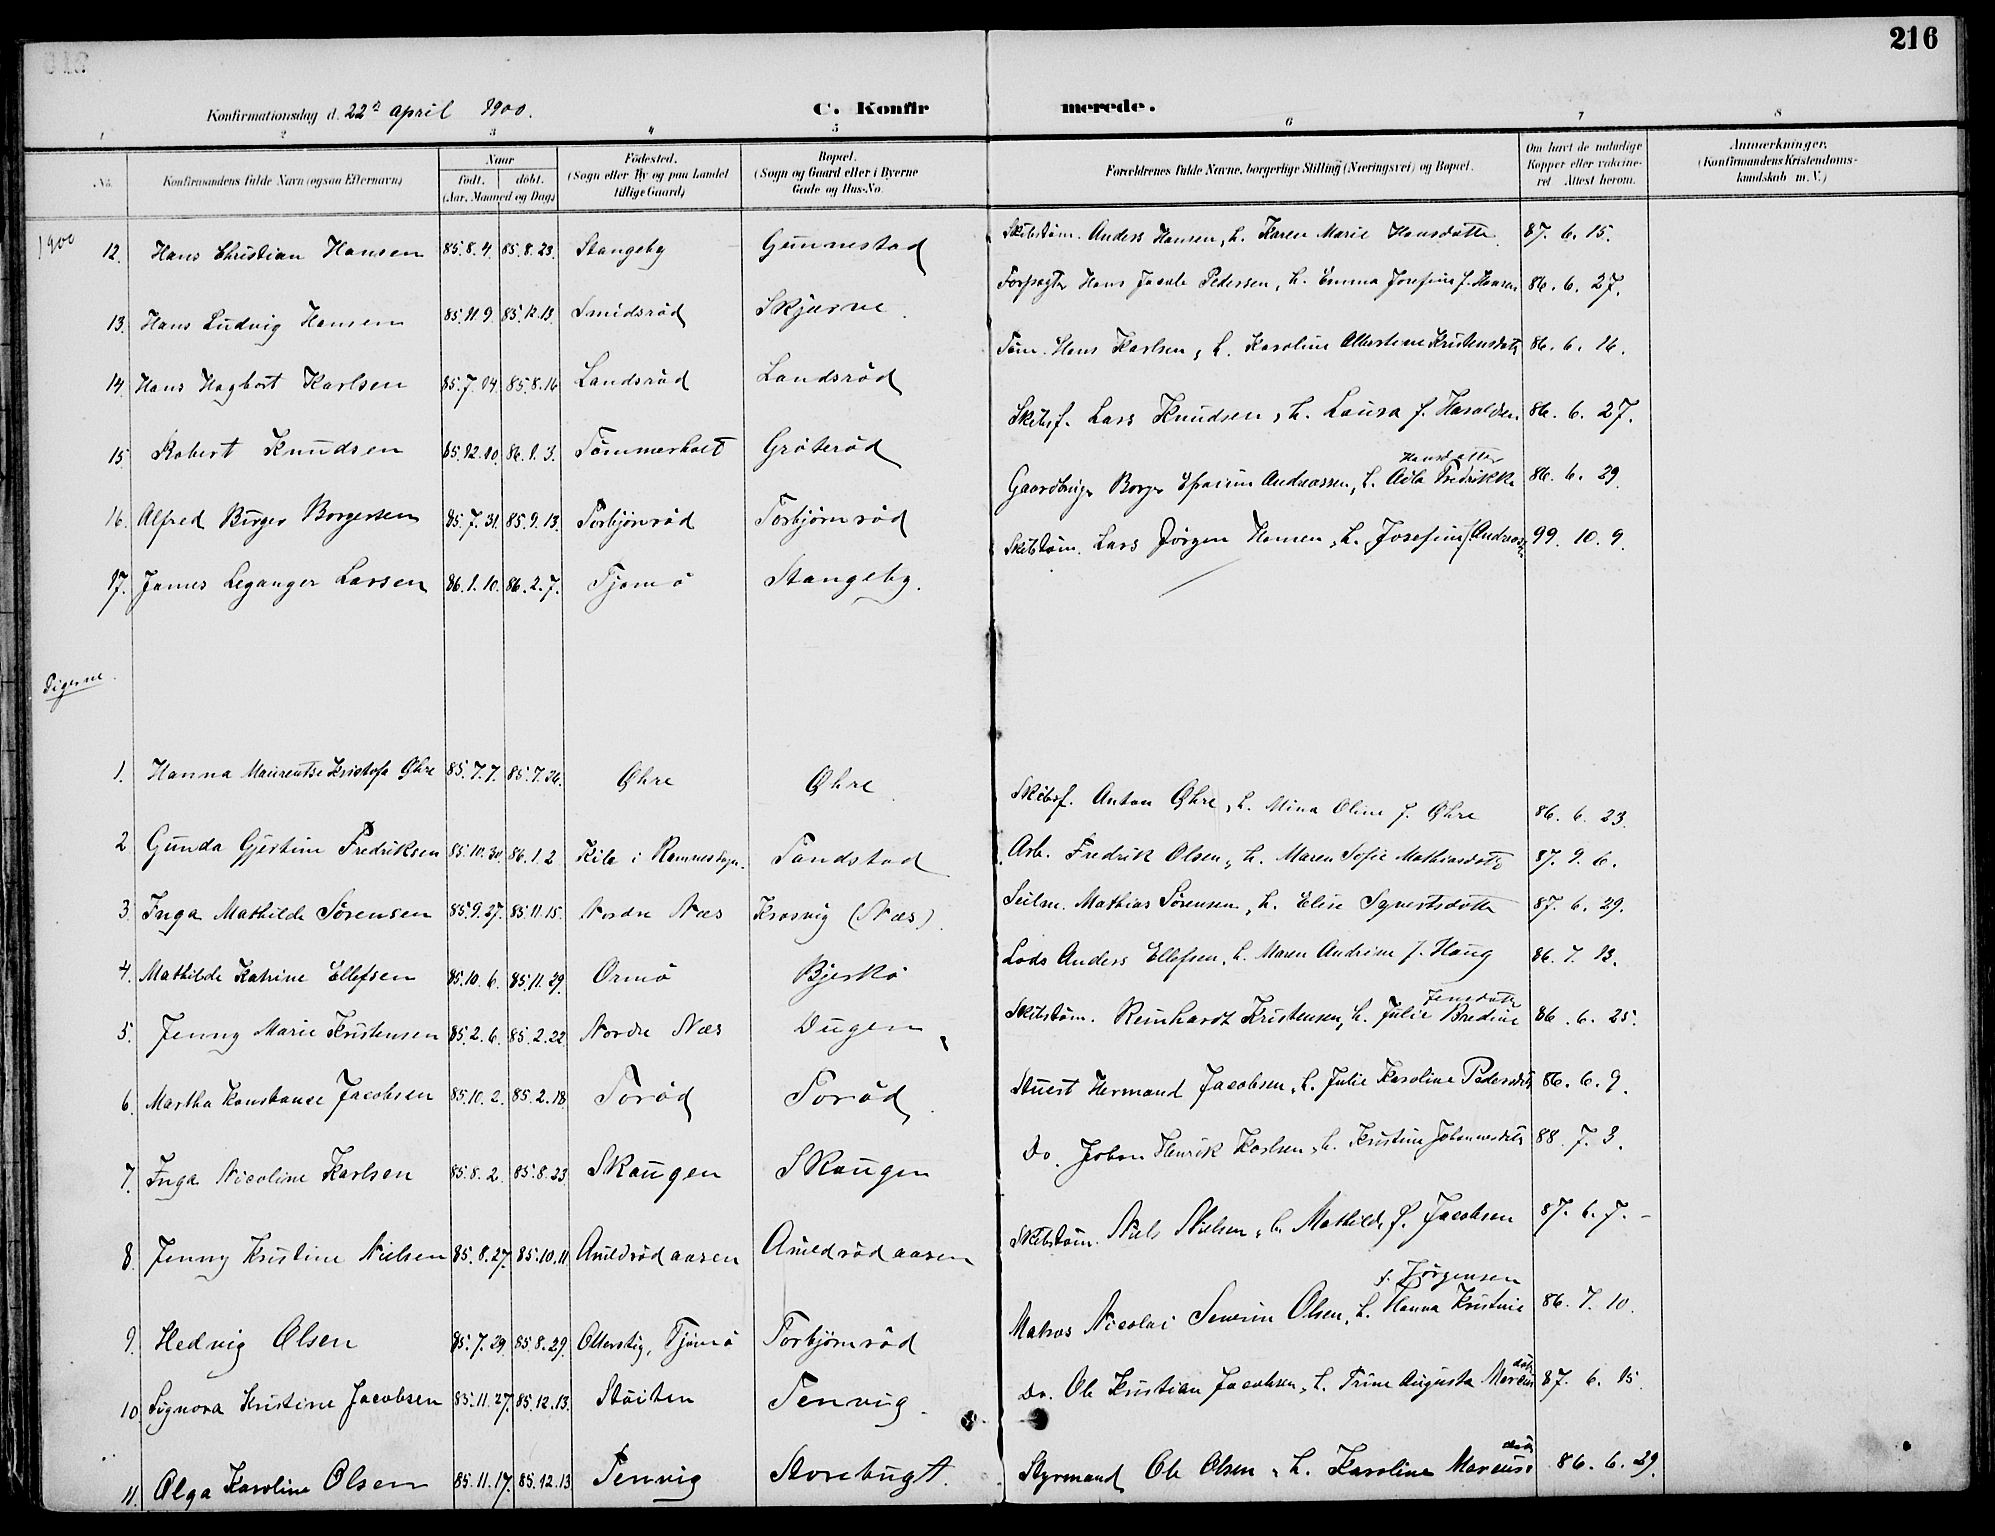 216
Konfirmationsdag d. 22d april 1900.
C. Konfirmerede.
1 2 3 4 5 6 7 8
No. Konfirmandens fulde Navn (ogsaa Efternavn)
Naar født. døbt. (Aar, Maaned og Dag)
Fødested. (Sogn eller By og paa Landet tillige Gaard)
Bopæl. (Sogn og Gaard eller i Byerne Gade og Hus-No.
Forældrenes fulde Navne, borgerlige Stilling (Næringsvei) og Bopæl.
Om havt de naturlige Kopper eller vaccineret Attest herom.
Anmærkninger. (Konfirmandens Kristendomskundskab m. V.)
1900
12. Hans Christian Hansen 85.8.4. 85.8.23. Stangeby Gunnestad Skibstøm. Anders Hansen, h. Karen Marie Hansdatte 87.6.15.
13. Hans Ludvig Hansen 85.11.9. 85.12.13. Smidsrød Skjærve Forpagter Hans Jacob Pedersen, h. Emma Josefine f. Hansen 86.6.27.
14. Hans Hagbart Karlsen 85.7.14. 85.8.16 Landsrød Landsrød Tøm. Hans Karlsen, h. Karoline Albertine Kristensdatt 86.6.16.
15. Robert Knudsen 85.12.10. 86.1.3. Tømmerholt Grøterød Skibsf. Lars Knudsen, h. Laura f. Haraldsen 86.6.27.
16. Alfred Birger Borgersen 85.7.31. 85.9.13. Torbjørnrød Torbjørnrød Gaardbruger Borger Efraim Andreassen, h. Adla Fredrikke Hansdatter 86.6.29.
17. James Leganger Larsen 86.1.10. 86.2.7. Tjømø Stangeby. Skibstøm. Lars Jørgen Hansen, h. Josefine f. Andreas 99.10.9.
Pigerne.
1. Hanna Maurentse Kristofa Øhre 85.7.7. 85.7.26. Øhre Øhre Skibsf. Anton Øhre, h. Mina Oline f. Øhre 86.6.23.
2 Gunda Gjertine Fredriksen 85.10.30. 86.1.2 Kile i Ramnes sogn. Sandstad Arb. Fredrik Olsen, h. Maren Sofie Mathiasdatt 87.9.6.
3. Inga Mathilde Sørensen 85.9.27. 85.11.15. Nordre Næs Krosvig (Næs). Seilm. Mathias Sørensen, h. Elise Syvertsdatte 87.6.29.
4. Mathilde Katrine Ellefsen 85.10.6. 85.11.29. Ormø Bjerkø Lods Anders Ellefsen, h. Maren Andrine f. Haug 86.7.13.
5. Jenny Marie Kristensen 85.2.6. 85.2.22 Nordre Næs Dugen Skibstøm. Reinhardt Kristensen, h. Julie Bredine Jensdatte 86.6.25.
6. Martha Konstanse Jacobsen 85.10.2. 85.2.18 Torød Torød Stuert Hermand Jacobsen, h. Julie Karoline Pedersdt 86.6.9.
7. Inga Nicoline Karlsen 85.8.2. 85.8.23. Skaugen Skaugen Do. Johan Henrik Karlsen, h. Kristine Johannesdt 88.7.3.
8. Jenny Kristine Nielsen 85.8.27. 85.10.11 Amldrødaasen Amldrødaasen Skibstøm. Niels Nielsen, h. Mathilde f. Jacobsen 87.6.7.
9. Hedvig Olsen 85.7.29. 85.8.29. Ollerstig, Tjømø Torbjørnrød Matros Nicolai Severin Olsen, h. Hanna Kristine f. Jørgensen 86.7.10.
10. Signora Kristine Jacobsen 85.11.27. 85.12.13. Støiten Tenvig. Do. Ole Kristian Jacobsen, h. Trine Augusta Marcusdatt 87.6.15.
11. Olga Karoline Olsen 85.11.17. 85.12.13 Tenvig Storebugt. Styrmand Ole Olsen, h. Karoline Marcusdatt 86.6.29.